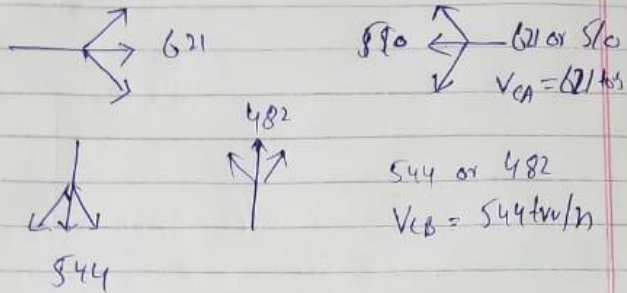 621
510
621 or 510
V_CA = 621 tvs
482
544 or 482
V_CB = 544 tvu/h
544